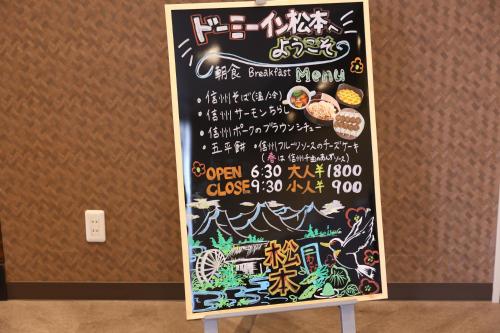 ドーミーイン松本へ
ようこそ
朝食 Breakfast Menu
・信州そば(温/冷)
・信州サーモンちらし
・信州ポークのブラウンシチュー
・五平餅 ・信州フルーツソースのチーズケーキ
(春は信州千曲のあんずソース)
OPEN 6:30 大人¥1800
CLOSE 9:30 小人¥900
松本